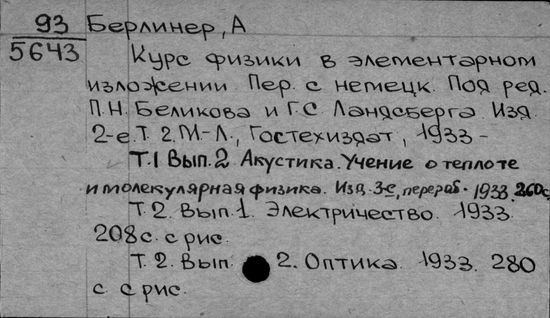 93 Берлинер, А
5643 Курс физики в элементарном
изложении Пер. с немецк. Под ред.
П.Н. Беликова и Г.С. Ландсберга Изд.
2-е. Т. 2. М-Л., Гостехиздат, 1933 -
Т.1 Вып.2 Акустика. Учение о теплоте
и молекулярная физика. Изд. 3-е, перераб. 1933. 260с.
Т. 2. Вып. 1. Электричество. 1933.
208с. с рис.
Т. 2. Вып. 2. Оптика. 1933. 280
с. с рис.